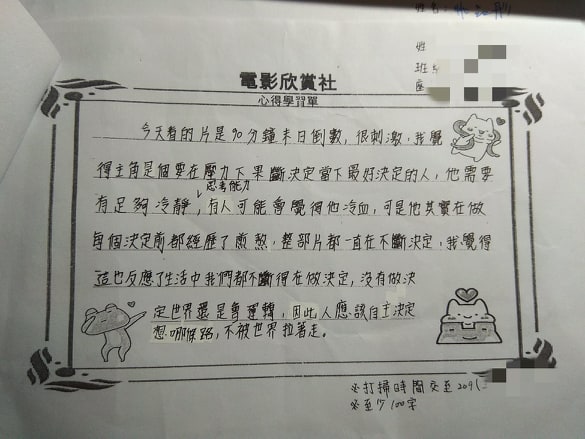 姓
班
座
電影欣賞社
心得學習單
今天看的片是90分鐘末日倒數，很刺激，我覺
得主角是個要在壓力下果斷決定當下最好決定的人，他需要
思考能力
有足夠冷靜，有人可能會覺得他冷血，可是他其實在做
每個決定前都經歷了煎熬，整部片都一直在不斷決定，我覺得
這也反應了生活中我們都不斷得在做決定，沒有做決
定世界還是會運轉，因此人應該自主決定
想哪條路，不被世界拉著走。
※打掃時間交至209(
※至少100字